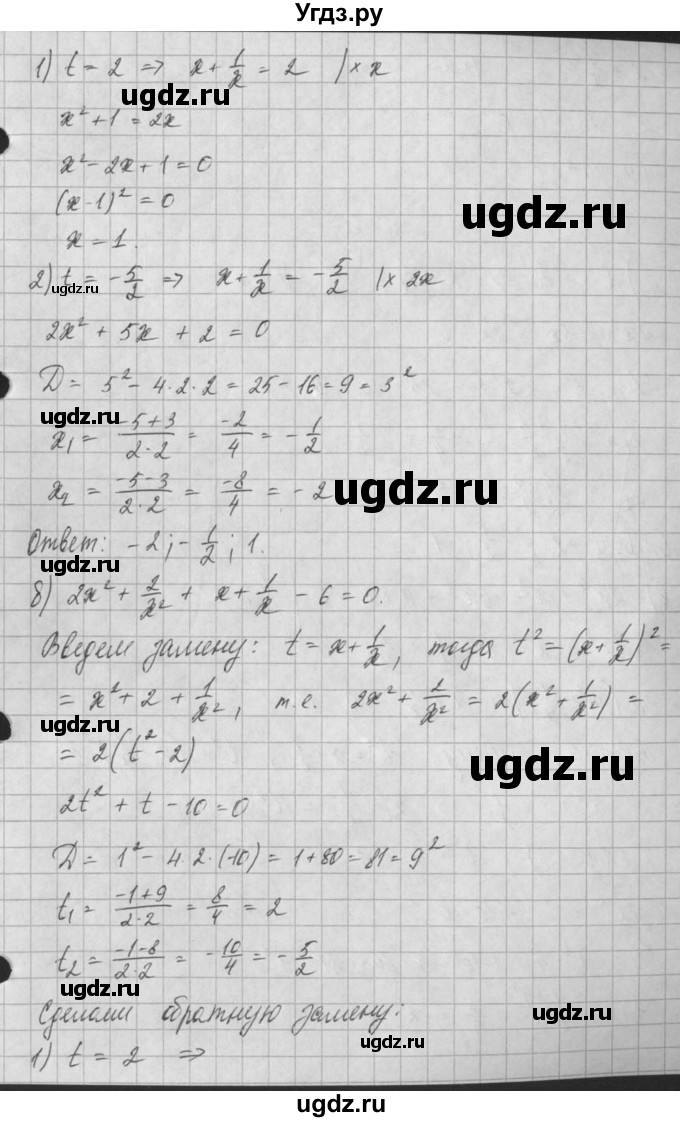 Угдз.ру
1) t = 2 ⇒ x + 1/x = 2 | × x
ugdz.ru
x² + 1 = 2x
x² - 2x + 1 = 0
(x - 1)² = 0
ugdz.ru
x = 1.
2) t = - 5/2 ⇒ x + 1/x = - 5/2 | × 2x
ugdz.ru
2x² + 5x + 2 = 0
D = 5² - 4·2·2 = 25 - 16 = 9 = 3²
ugdz.ru
x₁ = (-5+3)/(2·2) = -2/4 = - 1/2
x₂ = (-5-3)/(2·2) = -8/4 = - 2
ugdz.ru
Ответ: -2; - 1/2; 1.
ugdz.ru
б) 2x² + 2/x² + x + 1/x - 6 = 0.
Введем замену: t = x + 1/x, тогда t² = (x + 1/x)² =
= x² + 2 + 1/x², т.е. 2x² + 2/x² = 2(x² + 1/x²) =
ugdz.ru
= 2(t² - 2)
ugdz.ru
2t² + t - 10 = 0
D = 1² - 4·2·(-10) = 1 + 80 = 81 = 9²
ugdz.ru
t₁ = (-1+9)/(2·2) = 8/4 = 2
t₂ = (-1-8)/(2·2) = - 10/4 = - 5/2
ugdz.ru
Сделаем обратную замену:
ugdz.ru
1) t = 2 ⇒
ugdz.ru
ugdz.ru